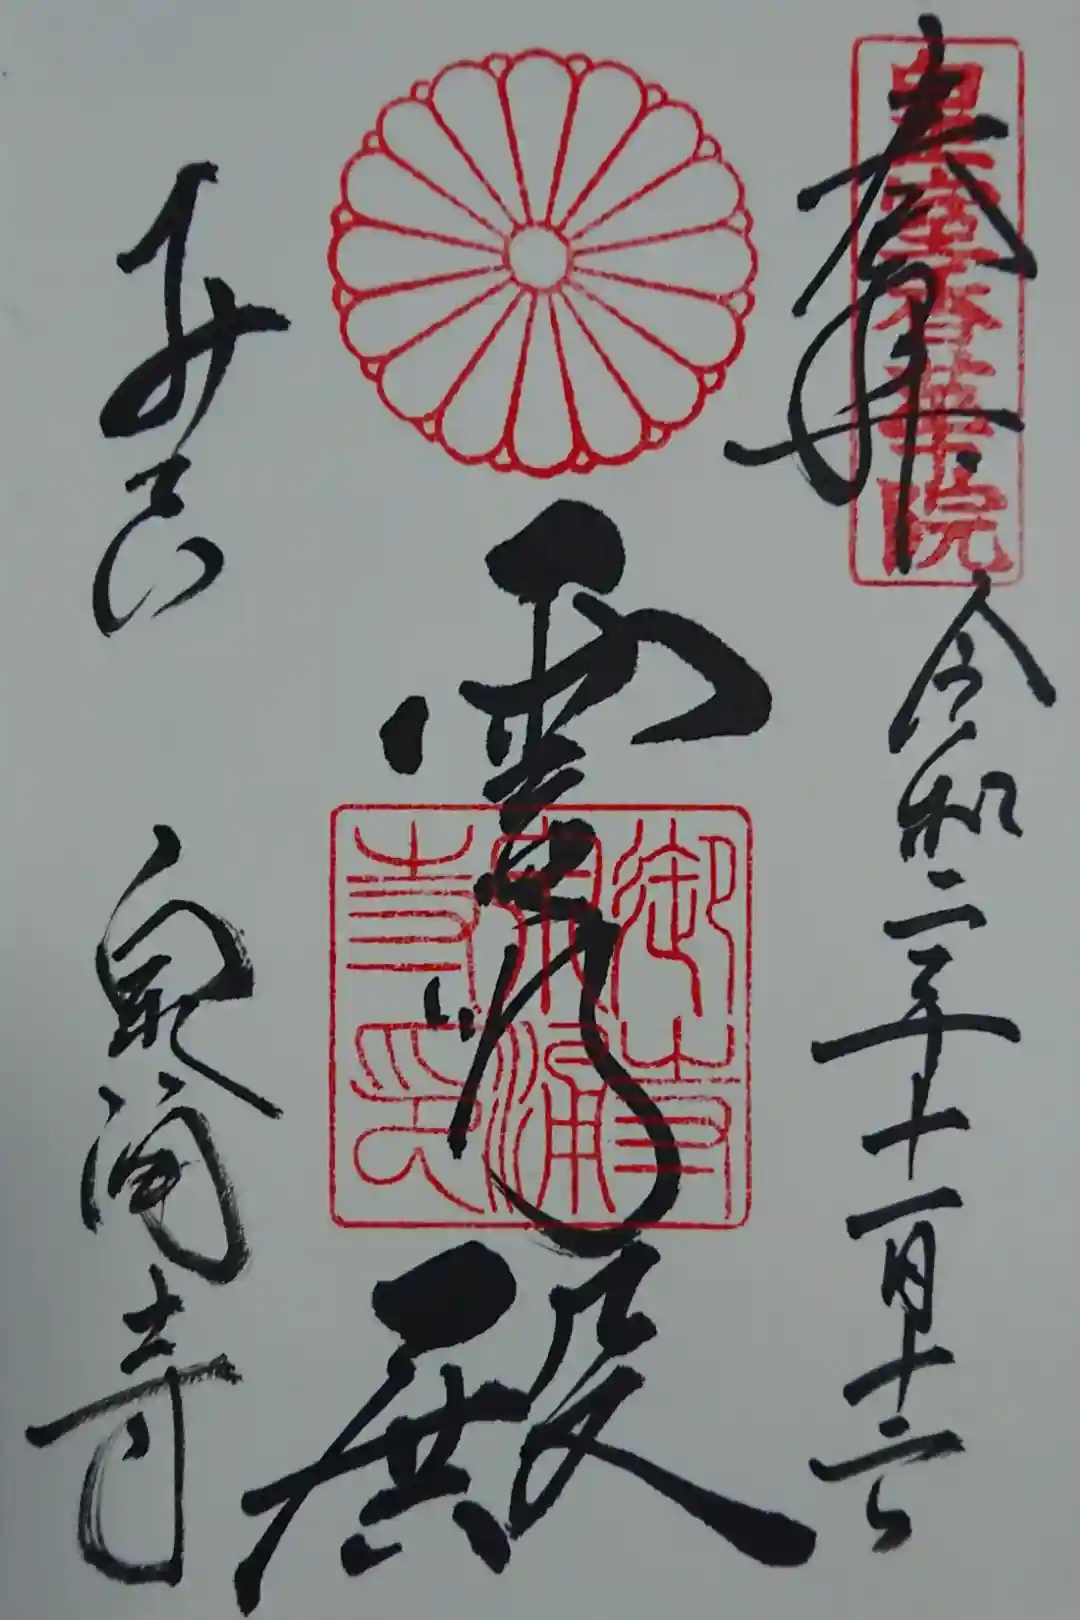 奉拝
皇室香華院
令和二年十一月十二日
霊明殿
御寺
泉涌
寺印
みてら
泉涌寺